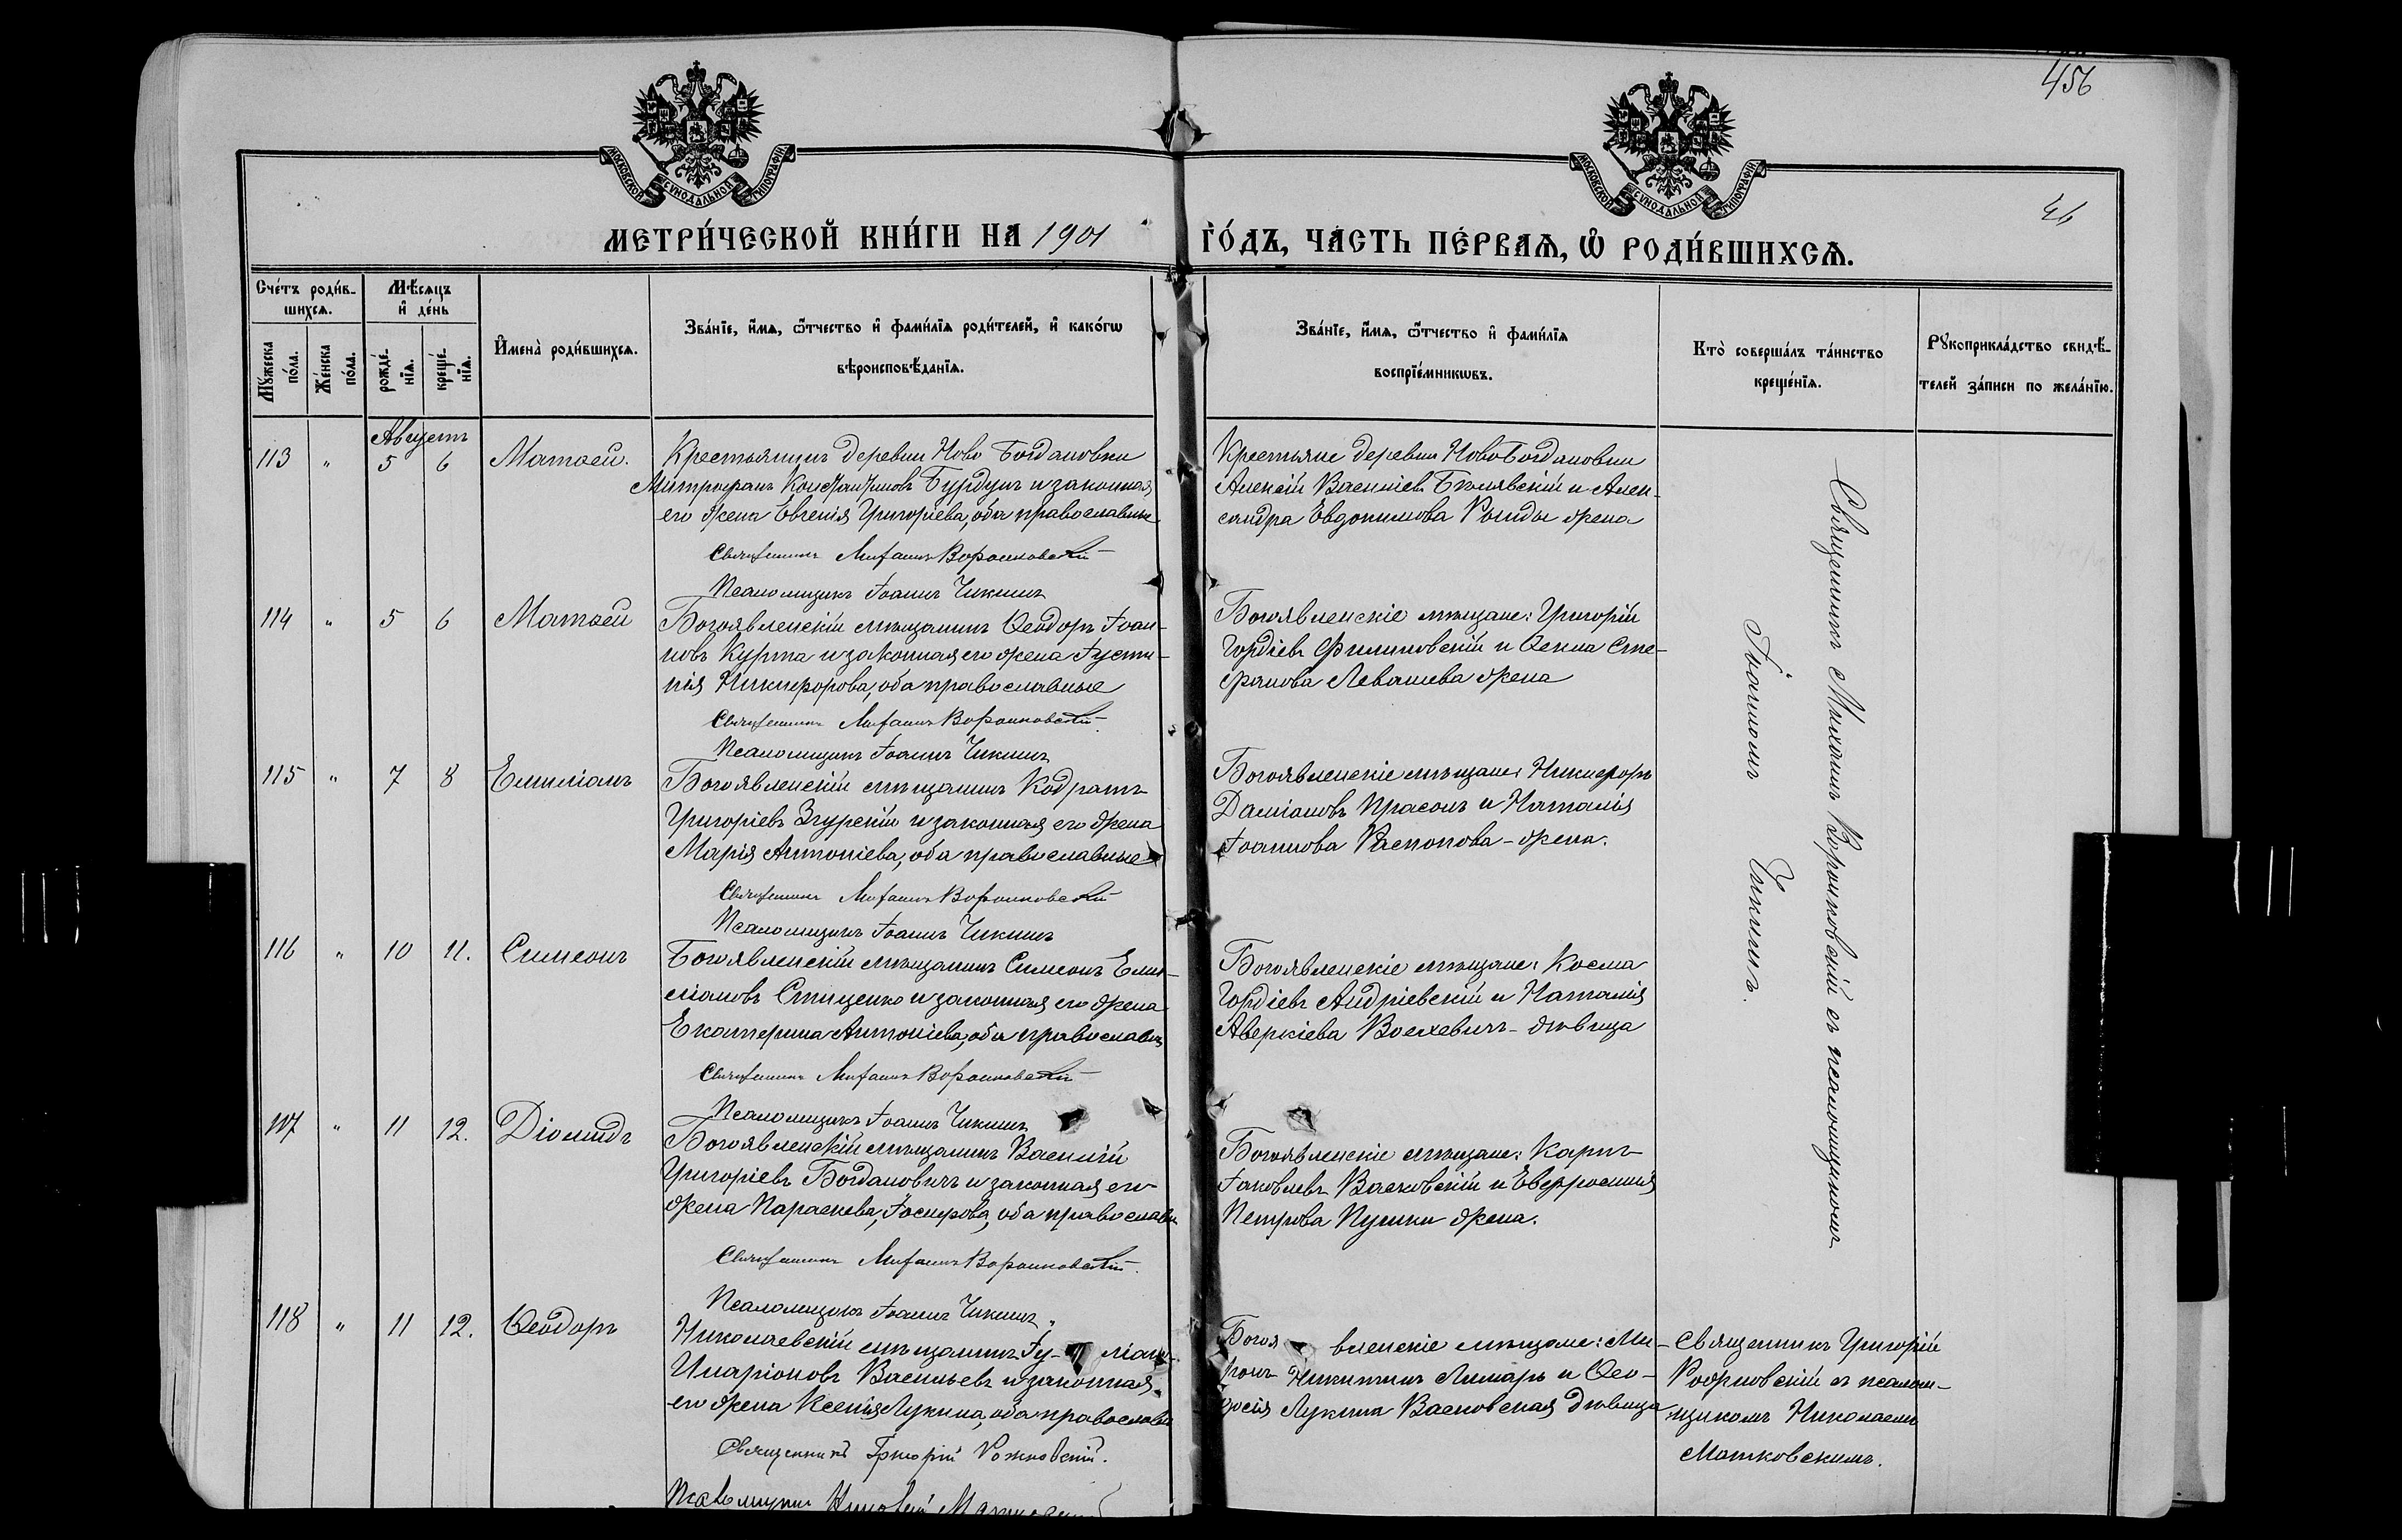 456
МОСКОВСКОЙ СѴНОДАЛЬНОЙ ТИПОГРАФІИ
МОСКОВСКОЙ СѴНОДАЛЬНОЙ ТИПОГРАФІИ
46
МЕТРИ́ЧЕСКОЙ КНИ́ГИ НА 1901 ГО́ДЪ, ЧА́СТЬ ПЕ́РВАѦ, Ѡ҆ РОДИ́ВШИХСѦ.
Сче́тъ роди́в-
шихсѧ.
Мꙋ́жеска по́ла.
Же́нска по́ла.
Мѣ́сѧцъ
и҆ де́нь
рожде́-
нїѧ.
креще́-
нїѧ.
И҆мена̀ роди́вшихсѧ.
Зва́нїе, и҆́мѧ, ѻ҆́тчество и҆ фами́лїѧ роди́телей, и҆ како́гѡ
вѣроисповѣ́данїѧ.
Зва́нїе, и҆́мѧ, ѻ҆́тчество и҆ фами́лїѧ
воспрїе́мникѡвъ.
Кто̀ соверша́лъ та́инство
креще́нїѧ.
Рꙋкоприкла́дство свидѣ́-
телей за́писи по жела́нїю.
Августъ
113 " 5 6 Матѳей.
Крестьянинъ деревни Ново Богдановки
Митрофанъ Константиновъ Бурдунъ и законная
его жена Евгенія Григоріева, оба православные
Священникъ Михаилъ Воронковскій
Псаломщикъ Іоаннъ Чикинъ
Крестьяне деревни НовоБогдановки
Алексій Василіевъ Бѣлявскій и Алек-
сандра Евдокимова жена
114 " 5 6 Матѳей
Богоявленскій мѣщанинъ Ѳеодоръ Іоан-
новъ Курта и законная его жена Іусти-
нія Никифорова, оба православные
Священникъ Михаилъ Воронковскій
Псаломщикъ Іоаннъ Чикинъ
Богоявленскіе мѣщане: Григорій
Гордіевъ Филиповскій и Ѳекла Сте-
фанова Левашева жена
115 " 7 8 Емиліанъ
Богоявленскій мѣщанинъ Кодратъ
Григоріевъ Згурскій и законная его жена
Марія Антоніева, оба православные
Священникъ Михаилъ Воронковскій
Псаломщикъ Іоаннъ Чикинъ
Богоявленскіе мѣщане: Никифоръ
Даміановъ Прасолъ и Наталія
Іоаннова Распопова - жена.
116 " 10 11. Симеонъ
Богоявленскій мѣщанинъ Симеонъ Еми-
ліановъ Стиценко и законная его жена
Екатерина Антоніева, оба православн
Священникъ Михаилъ Воронковскій
Псаломщикъ Іоаннъ Чикинъ
Богоявленскіе мѣщане: Косма
Гордіевъ Андріевскій и Наталія
Аверкіева - дѣвица
117 " 11 12. Діомидъ
Богоявленскій мѣщанинъ Василій
Григоріевъ Богдановичъ и законная его
жена Параскева, Іосифова, оба православн
Священникъ Михаилъ Воронковскій
Псаломщикъ Іоаннъ Чикинъ
Богоявленскіе мѣщане: Карпъ
Іаковлевъ Васковскій и Евфросинія
Петрова Пушки жена.
Священникъ Михаилъ Воронковскій съ псаломщикомъ
Іоанномъ Чикинъ.
118 " 11 12. Ѳеодоръ
Николаевскій мѣщанинъ Іу-ліанъ
Иларіоновъ Васильевъ и законная
его жена Ксенія Лукина, оба православн
Священникъ Григорій Рожновскій.
Псаломщикъ Николай
Богоявленскіе мѣщане: Ми-
ронъ Никитинъ Лимарь и Ѳео-
досія Лукина Васковская дѣвица
Священникъ Григорій
Рожновскій съ псалом-
щикомъ Николаемъ
Матковскимъ.